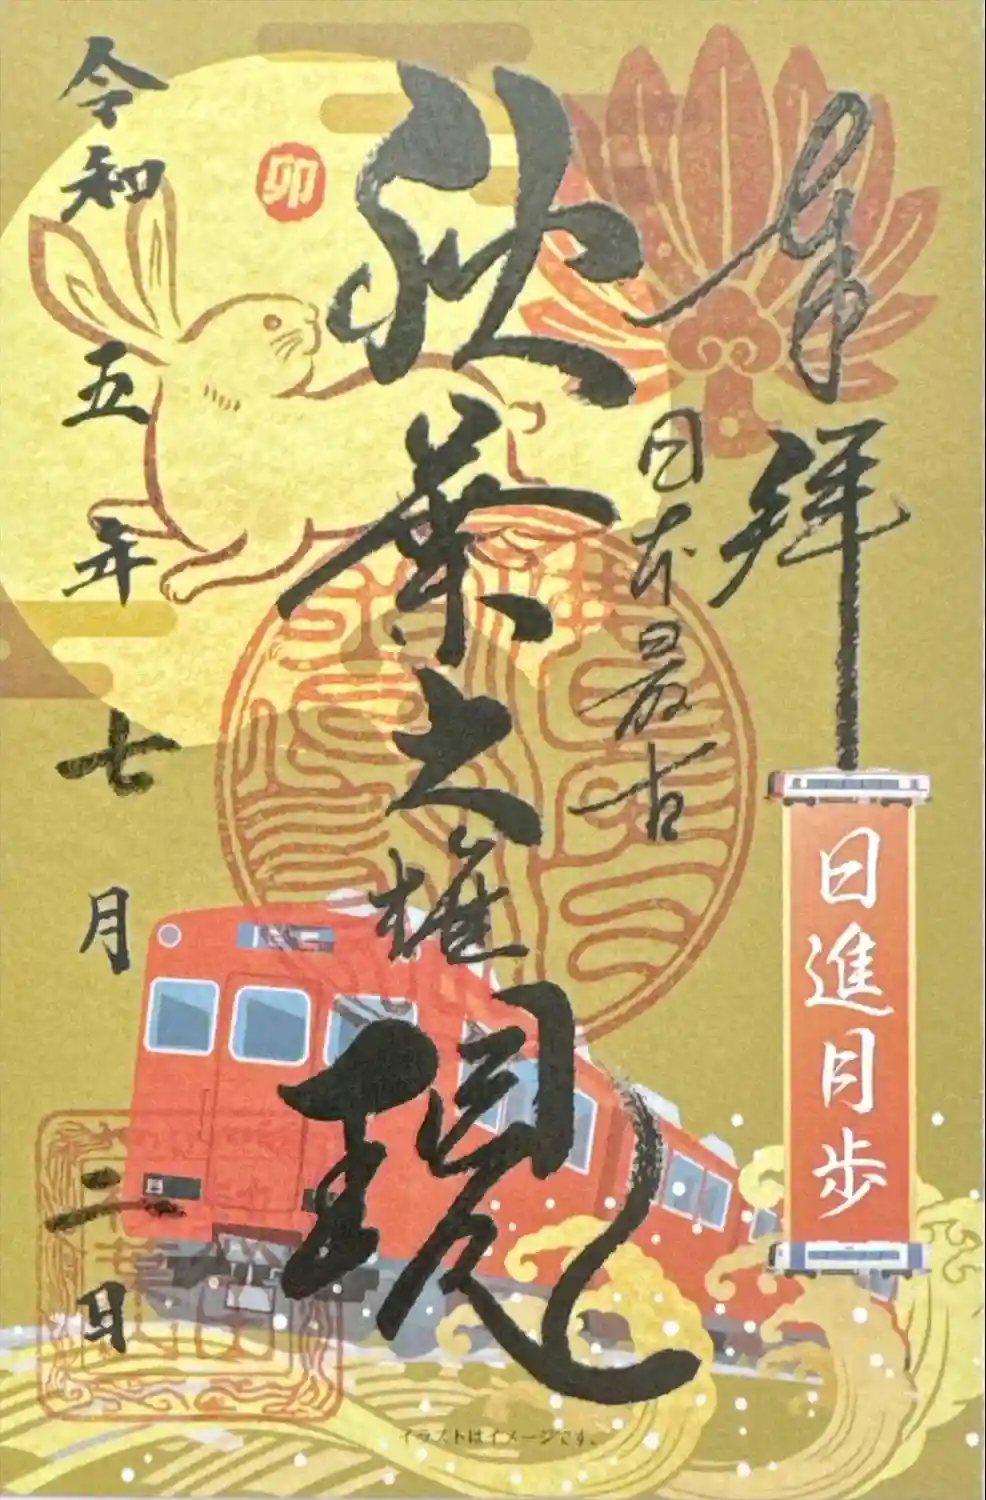 奉拝
日本最古
秋葉大権現
卯
令和五年七月二日
日進月歩
イラストはイメージです。